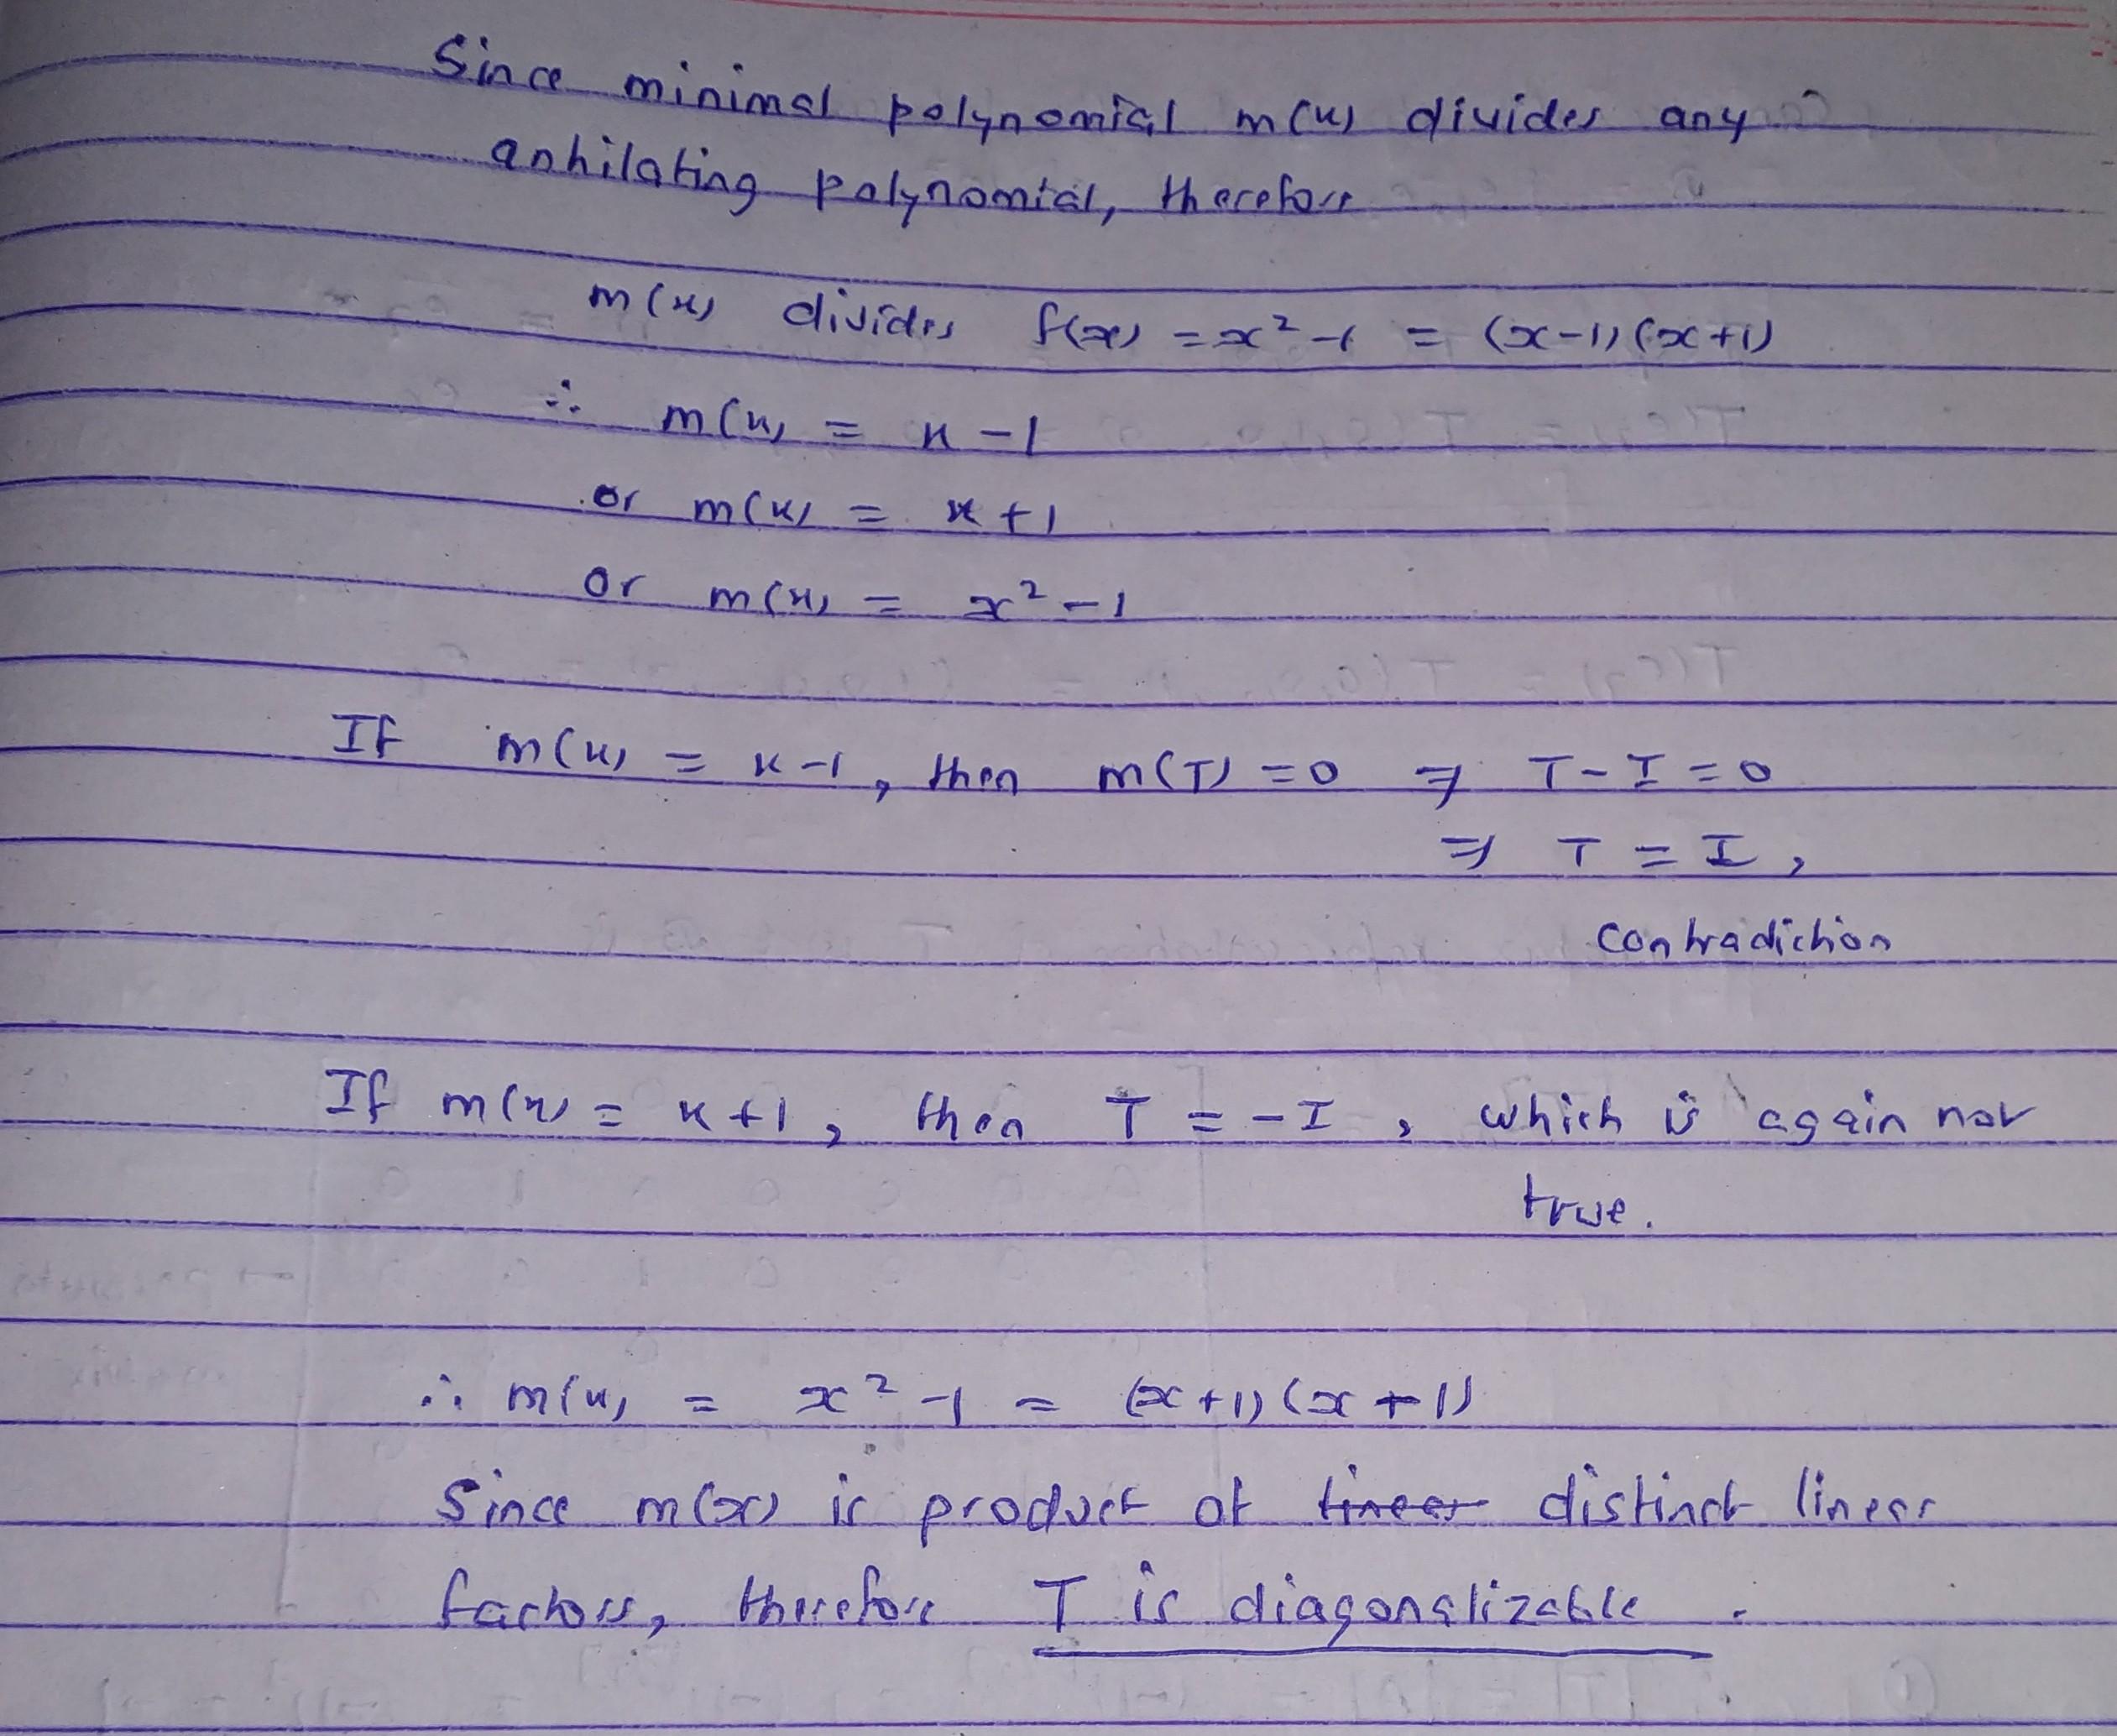 Since minimal polynomial m(x) divides any
anhilating polynomial, therefore
m(x) divides f(x) = x² - 1 = (x-1)(x+1)
∴ m(x) = x - 1
or m(x) = x + 1
or m(x) = x² - 1
If m(x) = x-1, then m(T) = 0 ⇒ T - I = 0
⇒ T = I,
contradiction
If m(x) = x+1, then T = -I, which is again not
true.
∴ m(x) = x² - 1 = (x+1)(x+1)
Since m(x) is product of linear distinct linear
factors, therefore T is diagonalizable.